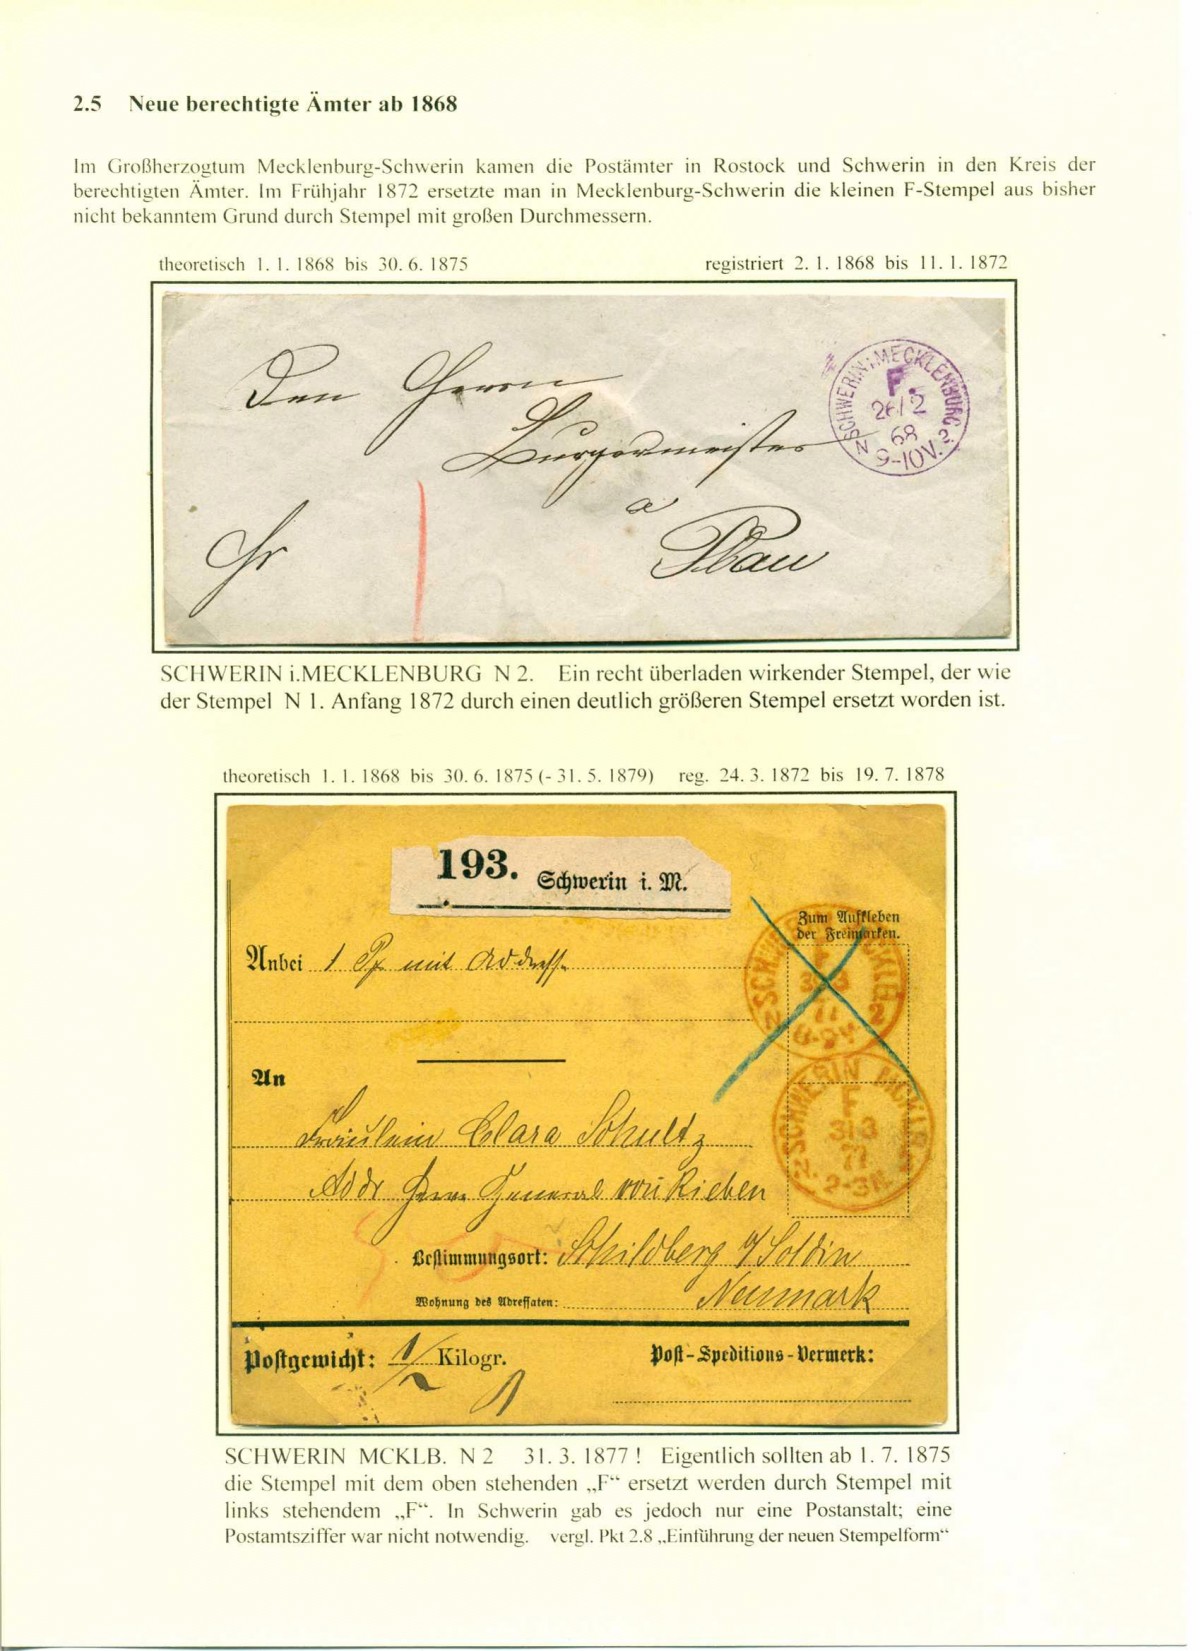 2.5 Neue berechtigte Ämter ab 1868
Im Großherzogtum Mecklenburg-Schwerin kamen die Postämter in Rostock und Schwerin in den Kreis der
berechtigten Ämter. Im Frühjahr 1872 ersetzte man in Mecklenburg-Schwerin die kleinen F-Stempel aus bisher
nicht bekanntem Grund durch Stempel mit großen Durchmessern.
theoretisch 1. 1. 1868 bis 30. 6. 1875 registriert 2. 1. 1868 bis 11. 1. 1872
SCHWERIN i.MECKLENBURG
F.
26/2
68
N 9-10V. 2.
Den Herrn
Burgermeister
a
Plau
SCHWERIN i.MECKLENBURG N 2. Ein recht überladen wirkender Stempel, der wie
der Stempel N 1. Anfang 1872 durch einen deutlich größeren Stempel ersetzt worden ist.
theoretisch 1. 1. 1868 bis 30. 6. 1875 (- 31. 5. 1879) reg. 24. 3. 1872 bis 19. 7. 1878
193. Schwerin i. M.
Zum Aufkleben
der Freimarken.
Anbei 1 P mit Addresse
An
Fräulein Clara Schultz
Addr Herrn General von Rieben
Bestimmungsort: Schildberg b/Soldin
Wohnung des Adressaten: Neumark
SCHWERIN MCKLB.
F
31 3
77
N. 2-3N. 2
Postgewicht: 1/2 Kilogr. Post-Speditions-Vermerk:
SCHWERIN MCKLB. N 2 31. 3. 1877 ! Eigentlich sollten ab 1. 7. 1875
die Stempel mit dem oben stehenden „F“ ersetzt werden durch Stempel mit
links stehendem „F“. In Schwerin gab es jedoch nur eine Postanstalt; eine
Postamtsziffer war nicht notwendig. vergl. Pkt 2.8 „Einführung der neuen Stempelform“